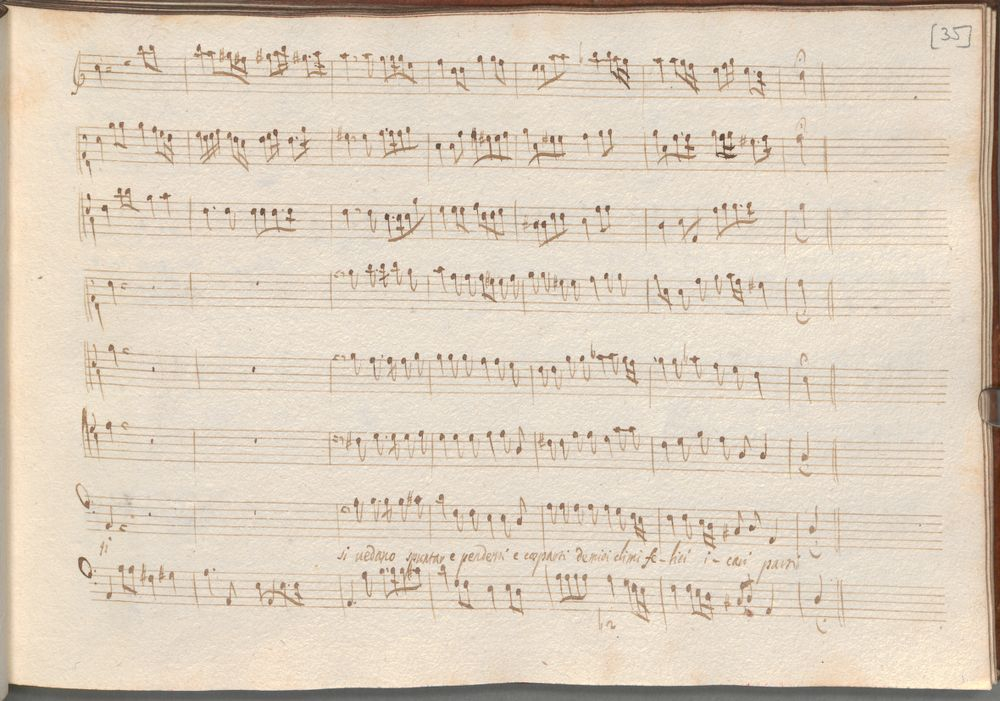 [35]
si vedano spuntar e pendersi e coparti de miei climi fe-lici i-cari parti